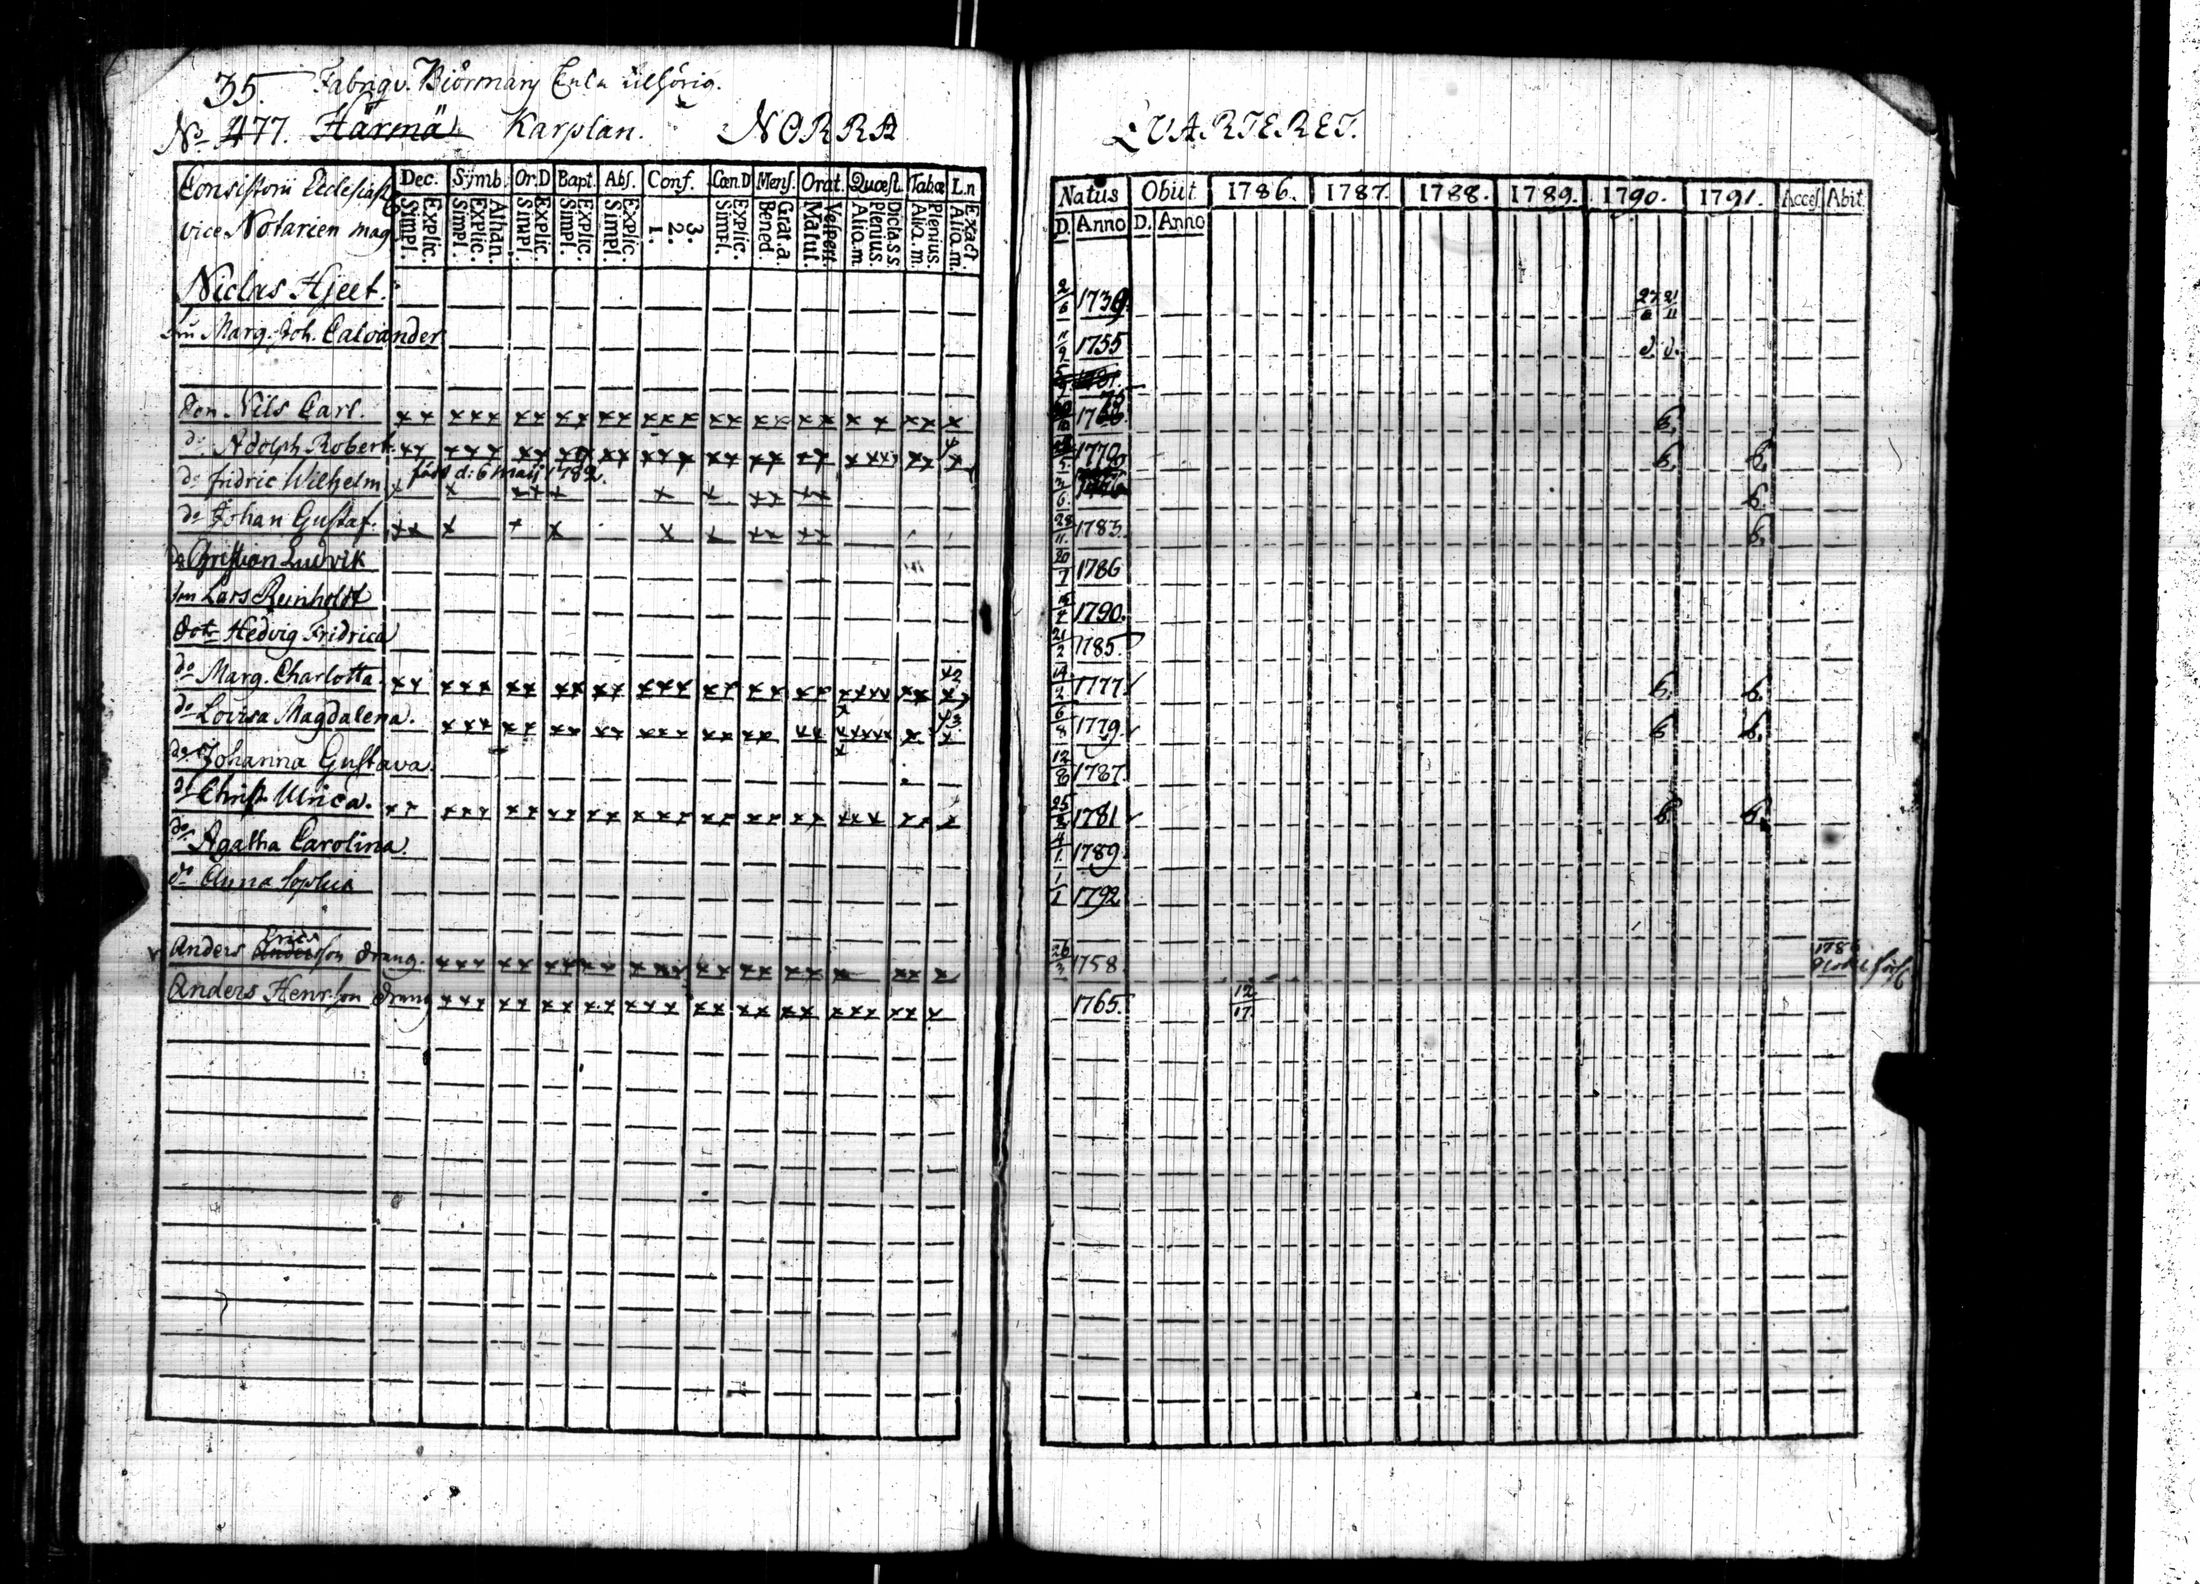 35. Fabriqv. Biörman Enka tilhörig.
No 477. Härmä. Karplan. NORRA QVARTERET.
Consistorii Ecclesiast
vice Notarien mag
Dec. Symb. Or.D Bapt. Abs. Conf. Cœn.D Mens. Orat. Quæst. Taba L.n
Explic. Simpl. Athan. Explic. Simpl. Explic. Simpl. Explic. Simpl. Explic. Simpl. 3. 2. 1. Explic. Simpl. Grat.a. Bened. Vespert. Matut. Dicta.s.s. Plenius. Aliq.m. Plenius. Aliq.m. Exact. Aliq.m.
Natus Obiit 1786. 1787. 1788. 1789. 1790. 1791. Acces. Abit.
D. Anno D. Anno
Niclas Hjelt. 2/6 1739. 27 21/11
Marg. Joh. Calvander 11/9 1755 d. d.
Son Nils Carl. 75 6.
do Adolph Robert. 1770 6. 6.
född d: 6 maij 1782.
do Fridric Wilhelm 3/6. 6.
do Johan Gustaf. 28/11. 1783. 6.
do Christian Ludvik 20/7 1786
Son Lars Reinholdt 1790.
Dotr Hedvig Fridrica 21/2 1785.
do Marg. Charlotta. 14/2 1777 6. 6.
do Lovisa Magdalena. 6/8 1779 6 6.
do Johanna Gustava. 12/8 1787.
do Christ. Ulrica. 25 1781 6. 6.
do Agatha Carolina. 4/1. 1789
do Anna Sophia 1/1 1792
Anders Ericsson dräng. 26/3 1758.
Anders Henr.son dräng 1765. 12/17